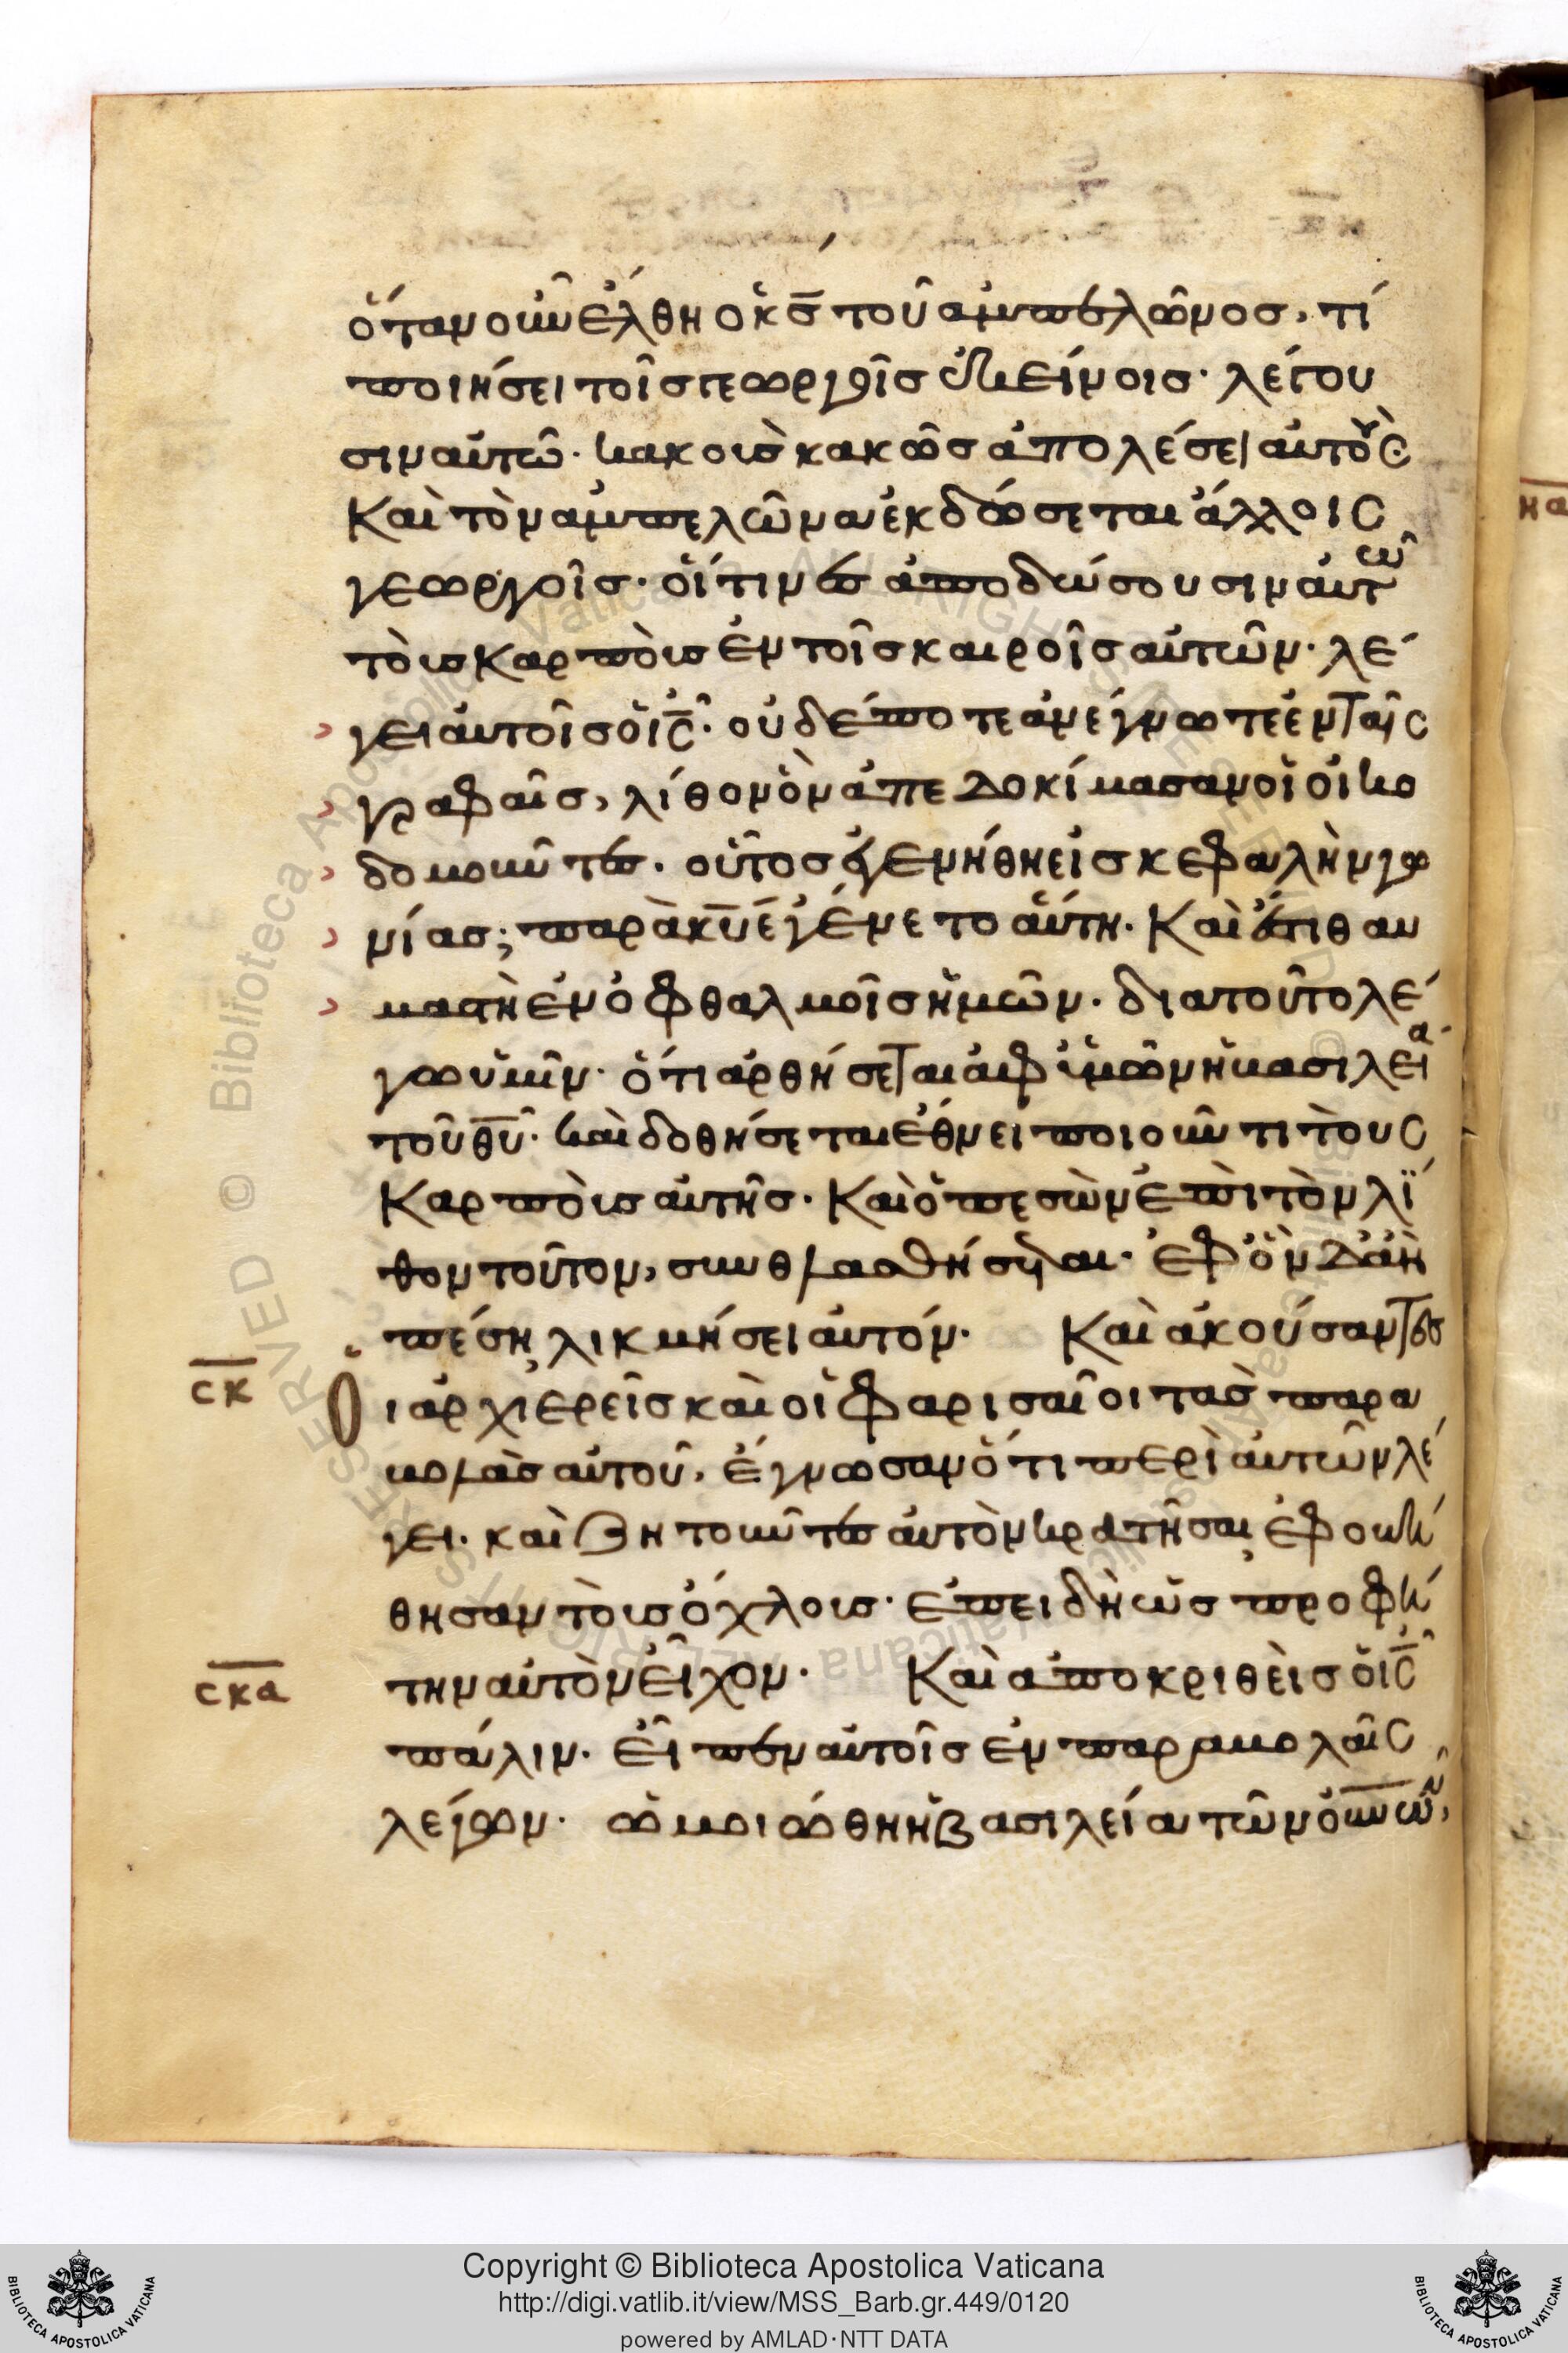 ὅταν οὖν ἔλθη ὁ κ̅ς̅ τοῦ ἀμπελῶνος, τί
ποιήσει τοῖς γεωργοῖς ἐκείνοις· λέγου
σιν αὐτῶ· κακοὺς κακῶς ἀπολέσει αὐτοὺς
Καὶ τὸν ἀμπελῶνα ἐκδώσεται ἄλλοις
γεωργοῖς· οἵτινες ἀποδώσουσιν αὐτῶ
τοὺς καρποὺς ἐν τοῖς καιροῖς αὐτῶν· λέ
γει αὐτοῖς ὁ ι̅ς̅· οὐδέποτε ἀνέγνωτε ἐν ταῖς
γραφαῖς, λίθον ὃν ἀπεδοκίμασαν οἱ οἰκο
δομοῦντες· οὗτος ἐγενήθη εἰς κεφαλὴν γω
νίας; παρὰ κ̅υ̅ ἐγένετο αὕτη· Καὶ ἔστι θαυ
μαστὴ ἐν ὀφθαλμοῖς ἡμῶν· διατοῦτο λέ
γω ὑμῖν· ὅτι ἀρθήσεται ἀφ ὑμῶν ἡ βασιλεία
τοῦ θ̅υ̅· καὶ δοθήσεται ἔθνει ποιοῦντι τοὺς
Καρποὺς αὐτῆς· Καὶ ὁ πεσὼν ἐπὶ τὸν λί
θον τοῦτον, συνθλασθήσεται· ἐφ ὃν δ ἂν
πέση, λικμήσει αὐτόν· Καὶ ἀκούσαντες
Οἱ ἀρχιερεῖς καὶ οἱ φαρισαῖοι τὰς παρα
βολὰς αὐτοῦ, ἔγνωσαν ὅτι περὶ αὐτῶν λέ
γει· καὶ ζητοῦντες αὐτὸν κρατῆσαι, ἐφοβή
θησαν τοὺς ὄχλους· ἐπειδὴ ὡς προφή
την αὐτὸν εἶχον· Καὶ ἀποκριθεὶς ὁ ι̅ς̅
πάλιν· εἶπεν αὐτοῖς ἐν παραβολαῖς
λέγων· ὡμοιώθη ἡ βασιλεία τῶν ο̅υ̅ν̅ω̅ν̅,
σ̅κ̅
σ̅κ̅α̅
Copyright © Biblioteca Apostolica Vaticana
http://digi.vatlib.it/view/MSS_Barb.gr.449/0120
powered by AMLAD·NTT DATA
BIBLIOTECA APOSTOLICA VATICANA
BIBLIOTECA APOSTOLICA VATICANA